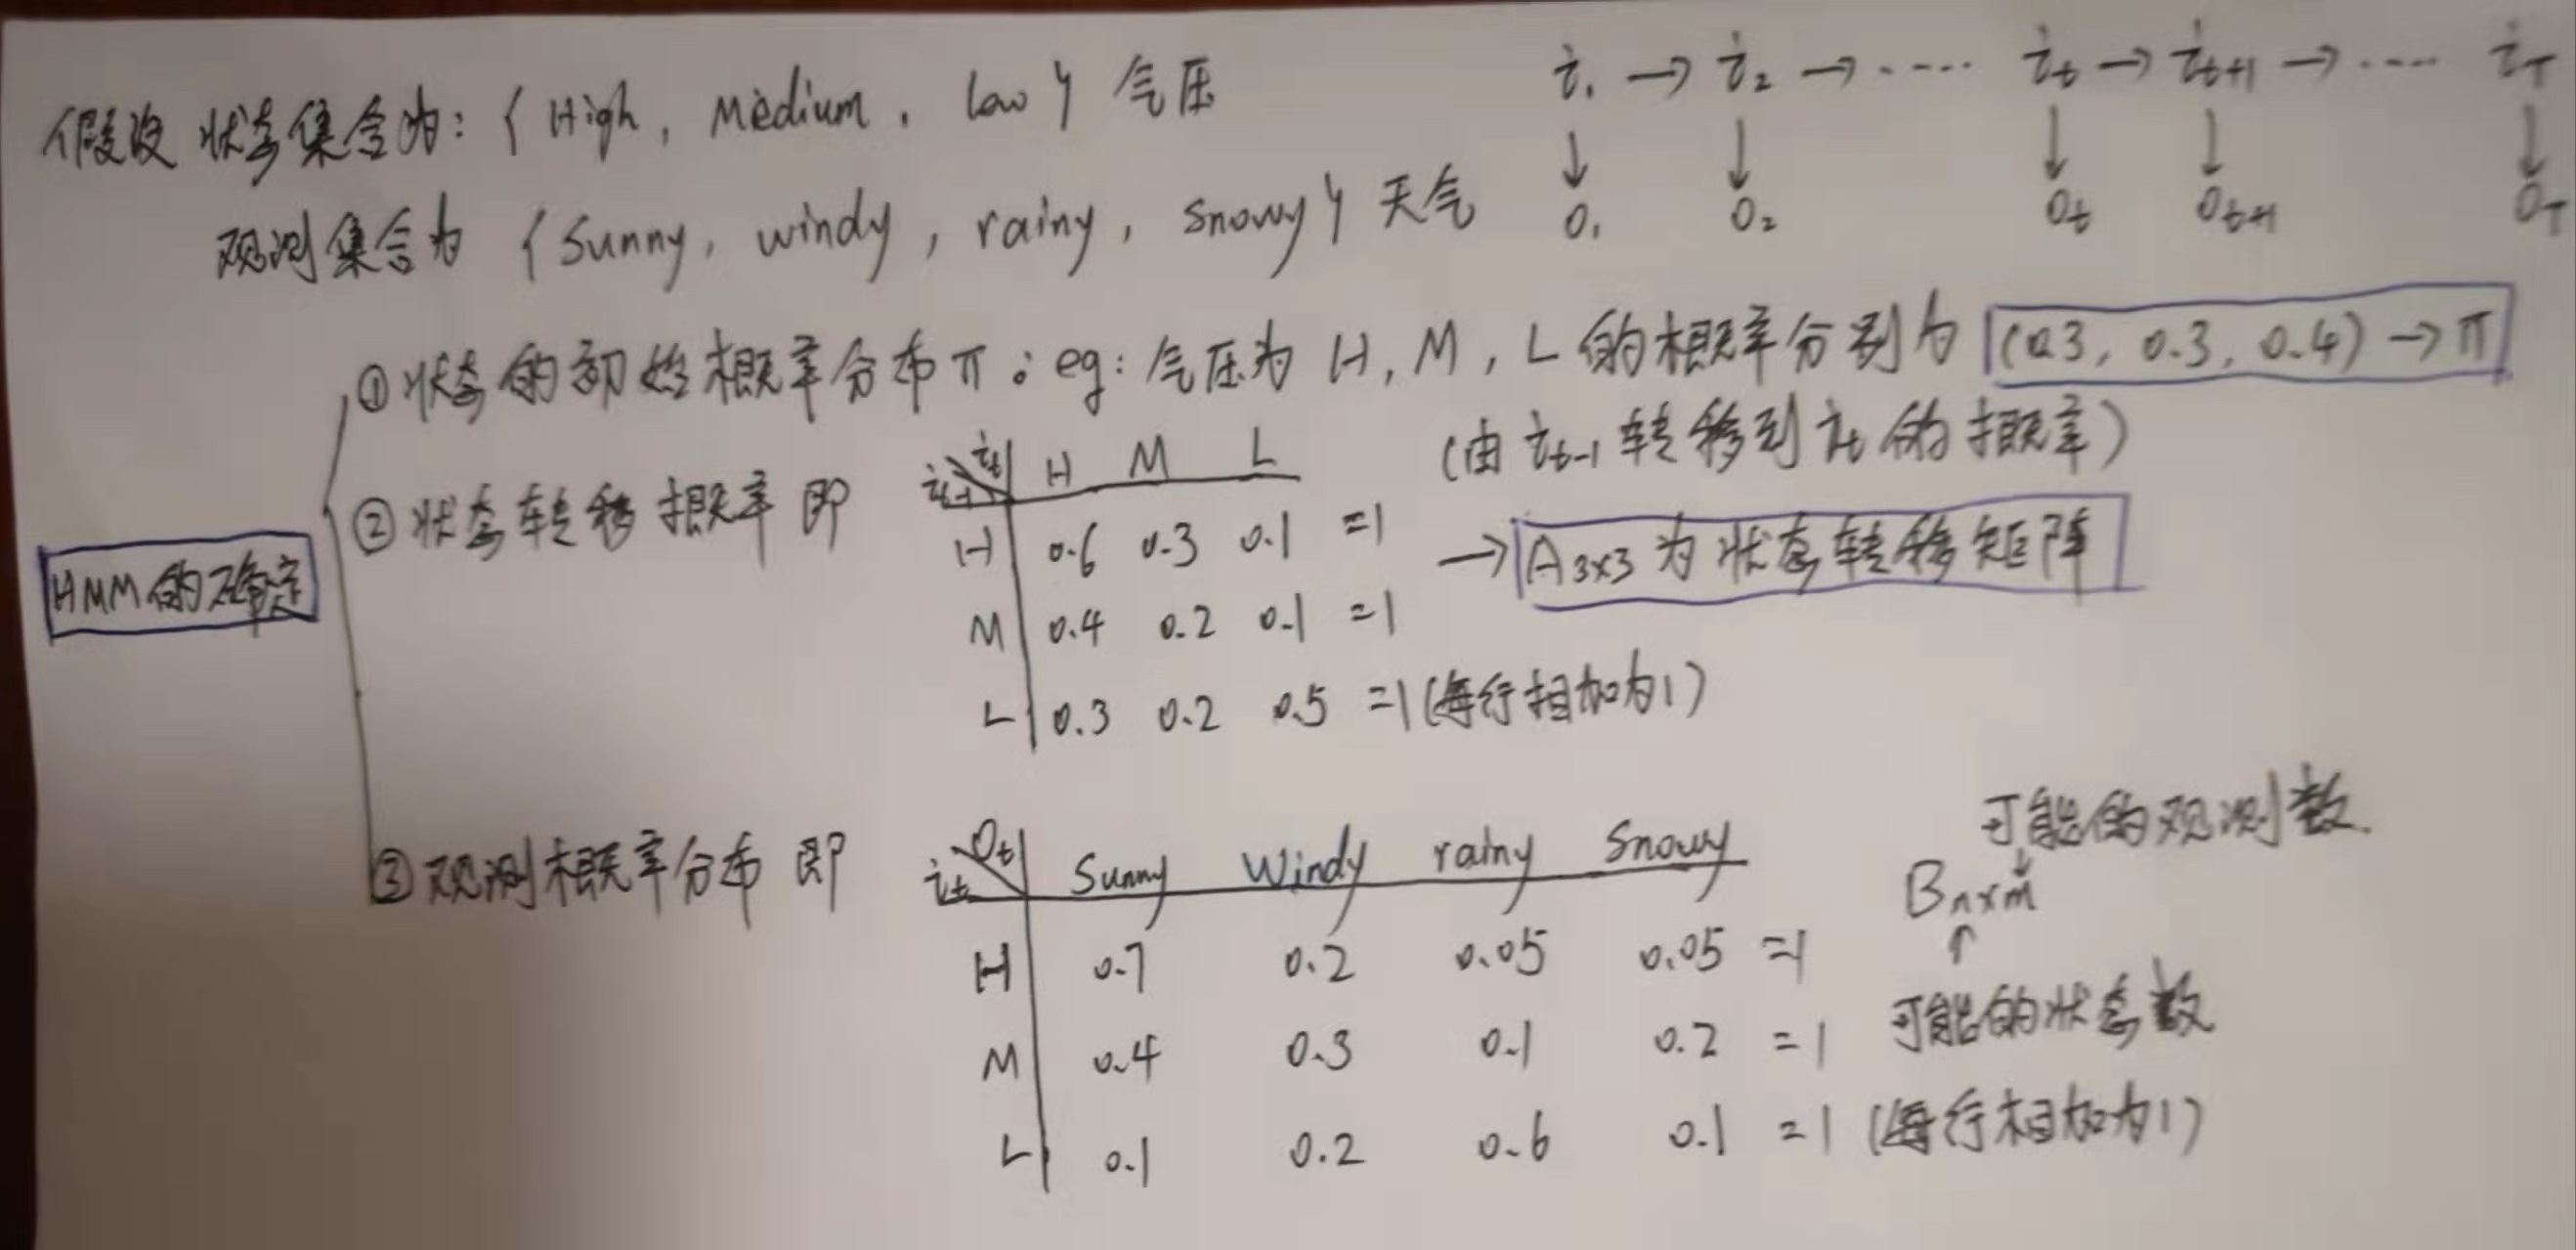 假设 状态集合为：{ High, Medium, low } 气压
i₁ → i₂ → ····· iₜ → iₜ₊₁ → ····· i_T
↓ ↓ ↓ ↓ ↓
观测集合为 { Sunny, windy, rainy, snowy } 天气
O₁ O₂ Oₜ Oₜ₊₁ O_T
① 状态的初始概率分布 π：eg：气压为 H, M, L 的概率分别为 (0.3, 0.3, 0.4) → π
(由 iₜ₋₁ 转移到 iₜ 的概率)
② 状态转移概率 即
iₜ₋₁ \ iₜ H M L
H 0.6 0.3 0.1 =1
→ A₃ₓ₃ 为状态转移矩阵
HMM 的确定
M 0.4 0.2 0.1 =1
L 0.3 0.2 0.5 =1 (每行相加为1)
③ 观测概率分布 即
iₜ \ Oₜ Sunny Windy rainy Snowy
可能的观测数.
↓
Bₙₓₘ
↑
可能的状态数
H 0.7 0.2 0.05 0.05 =1
M 0.4 0.3 0.1 0.2 =1
L 0.1 0.2 0.6 0.1 =1 (每行相加为1)